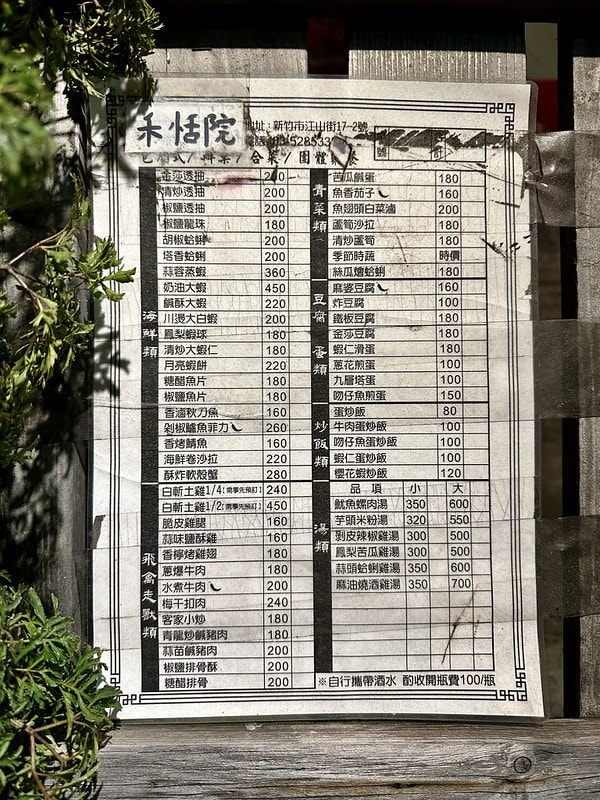 禾恬院
地址：新竹市江山街17-2號
528533
合菜/團體
海鮮類
金莎透抽 240
清炒透抽 200
椒鹽透抽 200
椒鹽龍珠 180
胡椒蛤蜊 200
塔香蛤蜊 200
蒜蓉蒸蝦 360
奶油大蝦 450
鹹酥大蝦 220
川燙大白蝦 200
鳳梨蝦球 180
清炒大蝦仁 180
月亮蝦餅 220
糖醋魚片 180
椒鹽魚片 180
香滷秋刀魚 160
剁椒鱸魚菲力 260
香烤鯖魚 160
海鮮卷沙拉 220
酥炸軟殼蟹 280
飛禽走獸類
白斬土雞1/4(需事先預訂) 240
白斬土雞1/2(需事先預訂) 450
脆皮雞腿 160
蒜味鹽酥雞 160
香檸烤雞翅 180
蔥爆牛肉 180
水煮牛肉 200
梅干扣肉 240
客家小炒 180
青龍炒鹹豬肉 180
蒜苗鹹豬肉 200
椒鹽排骨酥 200
糖醋排骨 200
青菜類
苦瓜鹹蛋 180
魚香茄子 160
魚翅頭白菜滷 200
蘆筍沙拉 180
清炒蘆筍 180
季節時蔬 時價
絲瓜燴蛤蜊 180
豆腐 蛋類
麻婆豆腐 160
炸豆腐 100
鐵板豆腐 180
金莎豆腐 180
蝦仁滑蛋 180
蔥花煎蛋 100
九層塔蛋 100
吻仔魚煎蛋 150
炒飯類
蛋炒飯 80
牛肉蛋炒飯 100
吻仔魚蛋炒飯 100
蝦仁蛋炒飯 100
櫻花蝦炒飯 120
湯類
品項 小 大
魷魚螺肉湯 350 600
芋頭米粉湯 320 550
剝皮辣椒雞湯 300 500
鳳梨苦瓜雞湯 300 500
蒜頭蛤蜊雞湯 350 600
麻油燒酒雞湯 350 700
※自行攜帶酒水 酌收開瓶費100/瓶